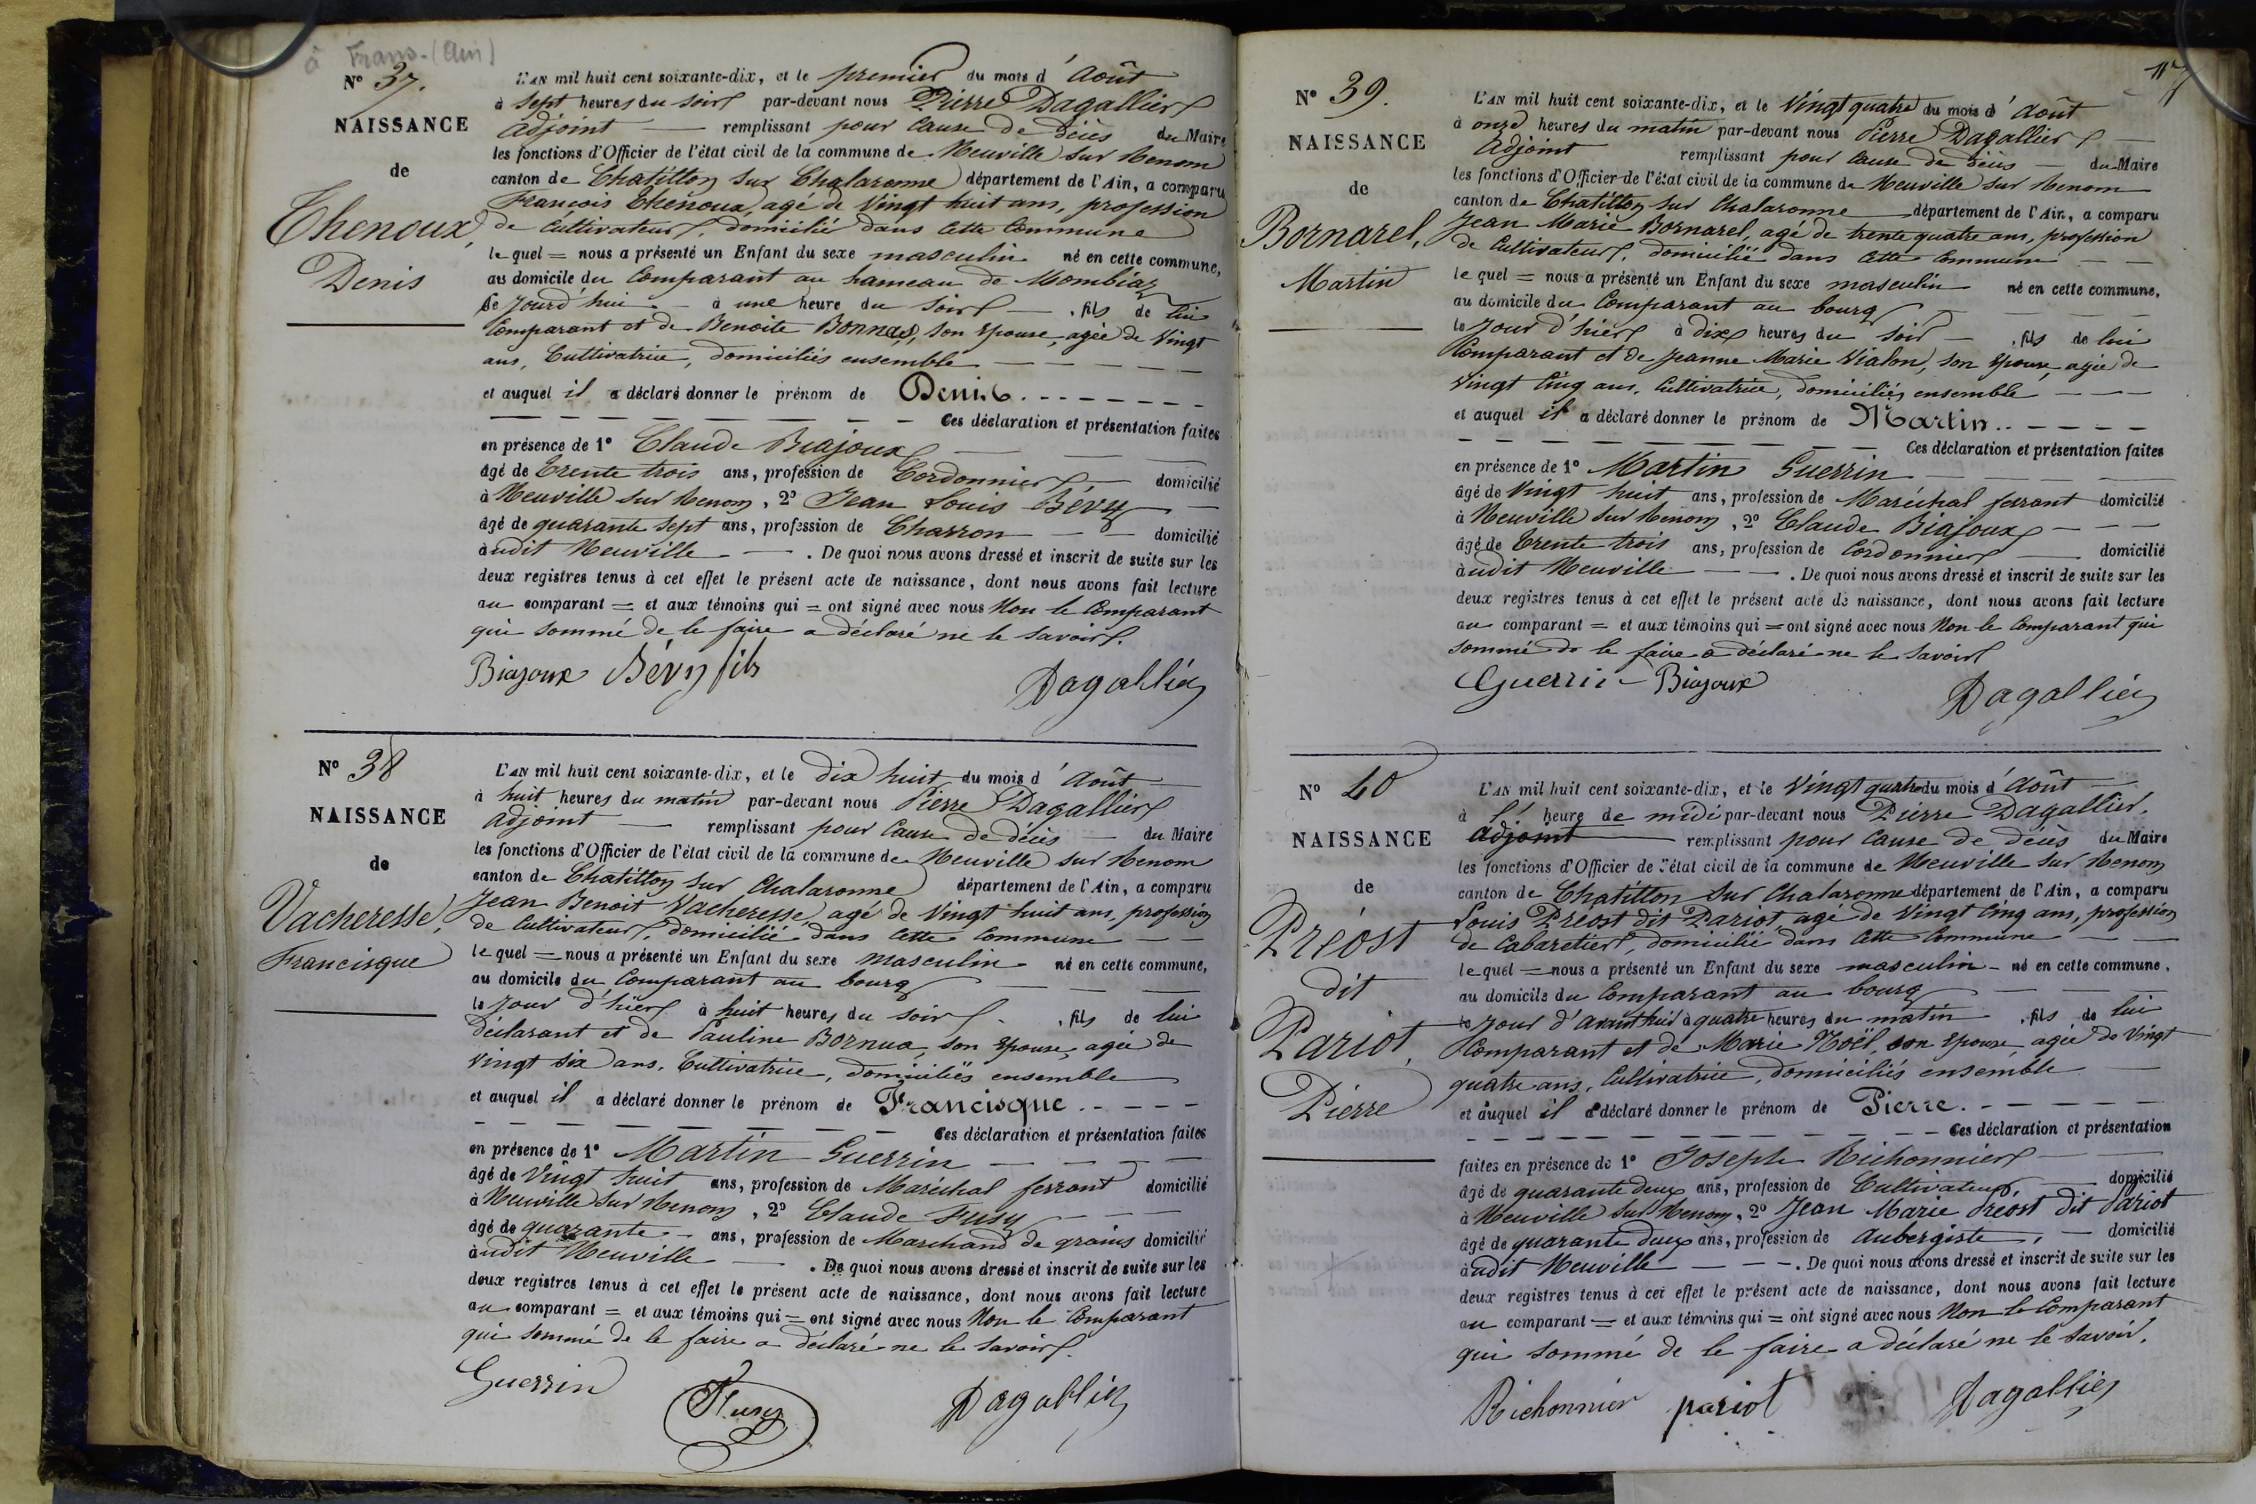 à Frans (Ain)
N° 37.
NAISSANCE
de
Thenoux,
Denis
L'AN mil huit cent soixante-dix, et le premier du mois d'Août
à sept heures du soir par-devant nous Pierre Dagallier
adjoint remplissant pour cause de décès du Maire
les fonctions d'Officier de l'état civil de la commune de Neuville sur Renom
canton de Chatillon sur Chalaronne département de l'Ain, a comparu
François Thénoux, agé de vingt huit ans, profession
de cultivateur, domicilié dans cette commune
le quel = nous a présenté un Enfant du sexe masculin né en cette commune,
au domicile du comparant au hameau de Mombiaz
ce jourd'hui à une heure du soir, fils de lui
comparant et de Benoite Bonnas, son épouse, agée de vingt
ans, cultivatrice, domiciliés ensemble
et auquel il a déclaré donner le prénom de Denis.
Ces déclaration et présentation faites
en présence de 1° Claude Biajoux
âgé de trente trois ans, profession de Cordonnier domicilié
à Neuville sur Renom, 2° Jean Louis Bévy
âgé de quarante sept ans, profession de Charron domicilié
àudit Neuville. De quoi nous avons dressé et inscrit de suite sur les
deux registres tenus à cet effet le présent acte de naissance, dont nous avons fait lecture
au comparant = et aux témoins qui = ont signé avec nous Non le comparant
qui sommé de le faire a déclaré ne le savoir.
Biajoux Bévy fils Dagallier
N° 38
NAISSANCE
de
Vacheresse,
Francisque
L'AN mil huit cent soixante-dix, et le dix huit du mois d'Août
à huit heures du matin par-devant nous Pierre Dagallier
adjoint remplissant pour cause de décès du Maire
les fonctions d'Officier de l'état civil de la commune de Neuville sur Renom
canton de Chatillon sur Chalaronne département de l'Ain, a comparu
Jean Benoit Vacheresse, agé de vingt huit ans, profession
de cultivateur, domicilié dans cette commune
le quel = nous a présenté un Enfant du sexe masculin né en cette commune,
au domicile du comparant au bourg
le jour d'hier à huit heures du soir, fils de lui
déclarant et de Pauline Bornua, son épouse, agée de
vingt six ans, cultivatrice, domiciliés ensemble
et auquel il a déclaré donner le prénom de Francisque.
Ces déclaration et présentation faites
en présence de 1° Martin Guerrin
âgé de vingt huit ans, profession de Maréchal ferrant domicilié
à Neuville sur Renom, 2° Claude Fusy
âgé de quarante ans, profession de Marchand de grains domicilié
àudit Neuville. De quoi nous avons dressé et inscrit de suite sur les
deux registres tenus à cet effet le présent acte de naissance, dont nous avons fait lecture
au comparant = et aux témoins qui = ont signé avec nous Non le comparant
qui sommé de le faire a déclaré ne le savoir.
Guerrin Fusy Dagallier
N° 39.
NAISSANCE
de
Bornarel,
Martin
L'AN mil huit cent soixante-dix, et le vingt quatre du mois d'Août
à onze heures du matin par-devant nous Pierre Dagallier
adjoint remplissant pour cause de décès du Maire
les fonctions d'Officier de l'état civil de la commune de Neuville sur Renom
canton de Chatillon sur Chalaronne département de l'Ain, a comparu
Jean Marie Bornarel, agé de trente quatre ans, profession
de cultivateur, domicilié dans cette commune
le quel = nous a présenté un Enfant du sexe masculin né en cette commune,
au domicile du comparant au bourg
le jour d'hier à dix heures du soir, fils de lui
comparant et de Jeanne Marie Vialon, son épouse, agée de
vingt cinq ans, cultivatrice, domiciliés ensemble
et auquel il a déclaré donner le prénom de Martin.
Ces déclaration et présentation faites
en présence de 1° Martin Guerrin
âgé de vingt huit ans, profession de Maréchal ferrant domicilié
à Neuville sur Renom, 2° Claude Biajoux
âgé de trente trois ans, profession de Cordonnier domicilié
àudit Neuville. De quoi nous avons dressé et inscrit de suite sur les
deux registres tenus à cet effet le présent acte de naissance, dont nous avons fait lecture
au comparant = et aux témoins qui = ont signé avec nous Non le comparant qui
sommé de le faire a déclaré ne le savoir
Guerrin Biajoux Dagallier
N° 40
NAISSANCE
de
Préost
dit
Pariot,
Pierre
L'AN mil huit cent soixante-dix, et le vingt quatre du mois d'Août
à l'heure de midi par-devant nous Pierre Dagallier,
adjoint remplissant pour cause de décès du Maire
les fonctions d'Officier de l'état civil de la commune de Neuville sur Renom
canton de Chatillon sur Chalaronne département de l'Ain, a comparu
Louis Préost dit Pariot, agé de vingt cinq ans, profession
de cabaretier, domicilié dans cette commune
le quel = nous a présenté un Enfant du sexe masculin né en cette commune,
au domicile du comparant au bourg
le jour d'avant hier à quatre heures du matin, fils de lui
comparant et de Marie Noël, son épouse, agée de vingt
quatre ans, cultivatrice, domiciliés ensemble
et auquel il a déclaré donner le prénom de Pierre.
Ces déclaration et présentation
faites en présence de 1° Joseph Richonnier
âgé de quarante deux ans, profession de Cultivateur, domicilié
à Neuville sur Renom, 2° Jean Marie Préost dit Pariot
âgé de quarante deux ans, profession de Aubergiste, domicilié
àudit Neuville. De quoi nous avons dressé et inscrit de suite sur les
deux registres tenus à cet effet le présent acte de naissance, dont nous avons fait lecture
au comparant = et aux témoins qui = ont signé avec nous Non le comparant
qui sommé de le faire a déclaré ne le savoir.
Richonnier pariot Dagallier